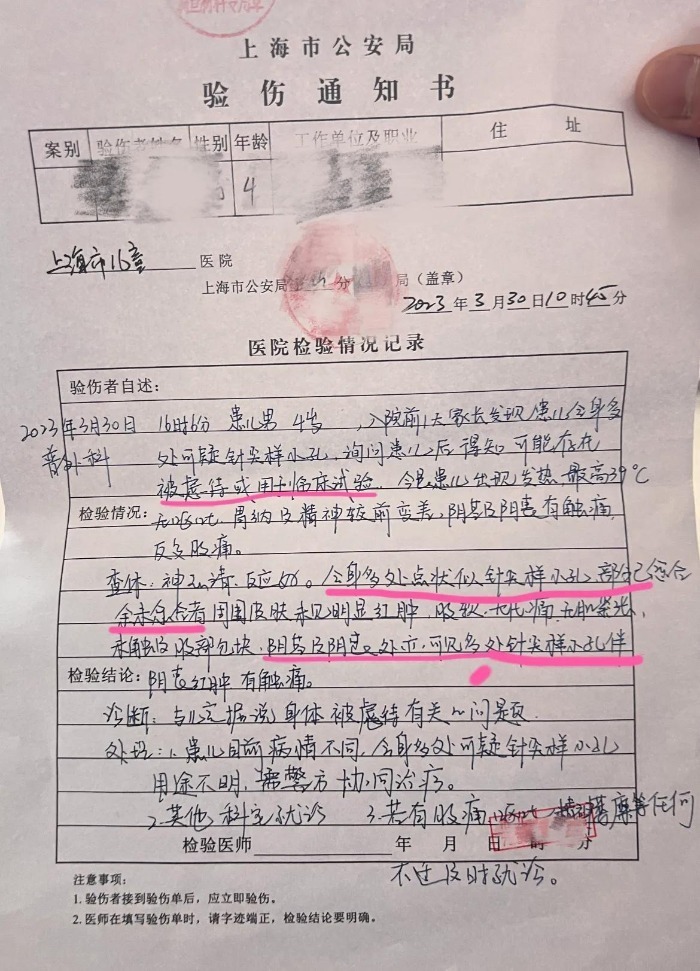 上海市公安局
验伤通知书
案别 验伤者姓名 性别 年龄 工作单位及职业 住址
4
上海市儿童 医院
上海市公安局 分 局（盖章）
2023年3月30日10时45分
医院检验情况记录
验伤者自述：
2023年3月30日 16时6分 患儿男 4岁，入院前1天家长发现患儿全身多
普外科 处可疑针尖样小孔，询问患儿后得知可能存在
被虐待或用于临床试验。今患儿出现发热，最高39℃
检验情况：
无呕吐，胃纳及精神较前变差，阴茎及阴囊有触痛，
反复腹痛。
查体：神志清，反应好。全身多处点状似针尖样小孔，部分已愈合
余未愈合者周围皮肤未见明显红肿，腹软，无压痛，无肌紧张，
未触及腹部包块，阴茎及阴囊处亦可见多处针尖样小孔伴
检验结论：
阴囊红肿有触痛。
诊断：与 据说身体被虐待有关的问题
处理：1.患儿目前病情不同，全身多处可疑针尖样小孔
用途不明，需警方协同治疗。
2.其他科室就诊 3.若有腹痛 呕吐 等任何
检验医师 年 月 日 时 分
不适及时就诊。
注意事项：
1. 验伤者接到验伤单后，应立即验伤。
2. 医师在填写验伤单时，请字迹端正，检验结论要明确。